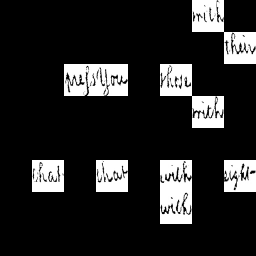 with
their
press You those
with
that that with eight
with